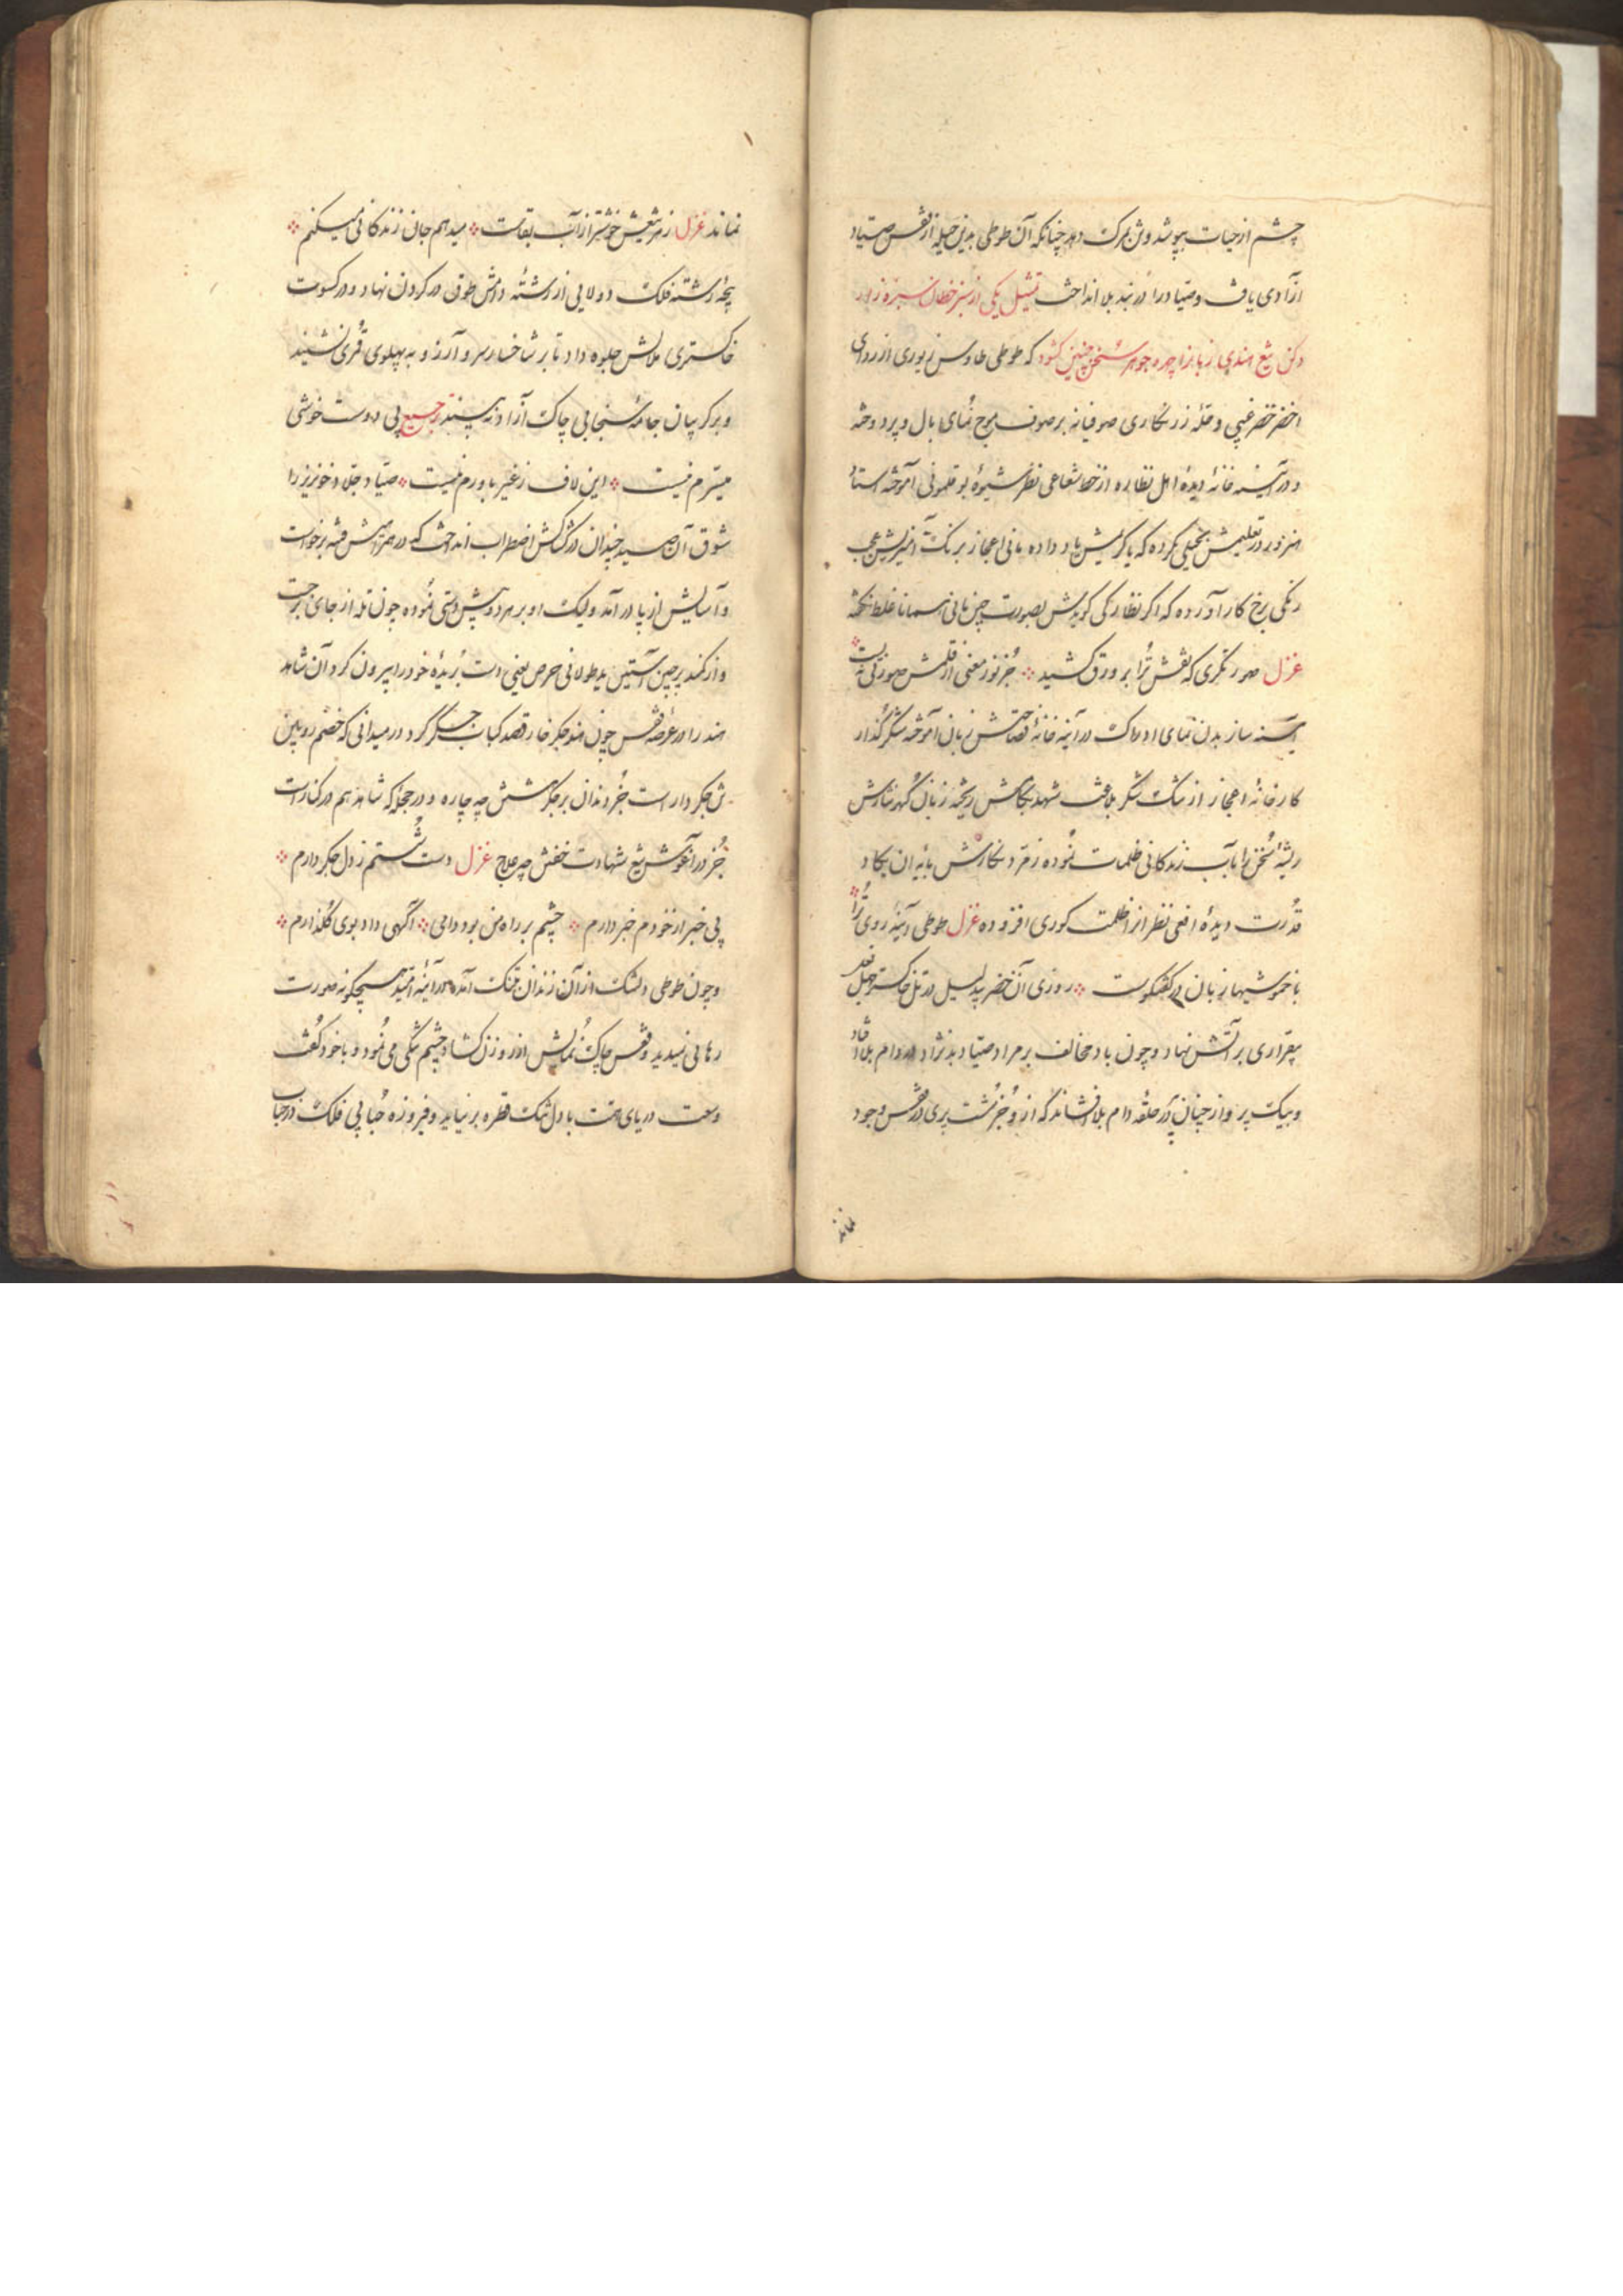 چشم از حیات بپوشد و تن بمرک دهد چنانکه آن طوطی بدین حیله از قفس صیاد
ازادی یافت و صیاد را در بند بلا انداخت تمثیل یکی از سبز خطان سبزه زار
دکن تیغ هندی زبان را چهره جوهر سخن چنین کشود که طوطی طاوس زیوری از ردای
اخضر خضر غیبی وحله زرنکاری صوفیانه بر صوف موج نمای بال و پر دوخته
و در آینه خانهٔ دیدهٔ اهل نظاره از خط شعاعی نظر شیوهٔ بوقلمونی آموخته استاد
هنرور در تعلیمش بخیلی نکرده که یا کریمش یاد داده مانی اعجاز برنک آمیزیش عجب
رنکی برخ کار آورده که اکر نظارکی کویدش بصورت چین مانی همانا غلط نکفته
غزل صورنکری که نقش ترا بر ورق کشید جز نور معنی از قلمش صورتی نبست
آینه ساز بدن نمای ادراک در آینه خانهٔ فصاحتش زبان آموخته شکر کذار
کارخانهٔ اعجاز از تنک شکر بلاغت شهد بکامش ریخته زبان کهر نثارش
ریشهٔ سخن را بآب زندکانی ظلمات نموده زمرد نکارش بآیه ان یکاد
قدرت دیدهٔ افعی نظر از ظلمت کوری افزوده غزل طوطی آینهٔ روی ترا
با خموشیها زبان در کفتکوست روزی آن خضر بی دلیل در تل خاکستر جبل نعد
بیقراری بر آتش نهاد و چون باد مخالف بر مراد صیاد بد نژاد در دام بلا افتاد
و بیک پرواز چنان پر در حلقه دام بلا فشاند که از و جز مشت پری در قفس وجود
نماند
نماند غزل زهر تیغش خوشتر از آب بقاست میدهم جان زندکانی میکنم
پنجه رشته فلک دولابی از رشتهٔ دامش طوق در کردن نهاد و در کسوت
خاکستری ملالش جلوه داد تا بر شاخسار سرو آرزو به پهلوی قمری نشیند
و بر کریبان جامهٔ سنجابی چاک آزاد نه پسندد ترجیع بی دوست خوشی
میسرم نیست این لاف ز غیر باورم نیست صیاد جلاد خونریز را
شوق آن صید چندان در کشاکش اضطراب انداخت که در همراهیش فتنه برخواست
و آسایش از پا در آمد و لیک او بر هر دو پیش دستی نموده چون تله از جای برجست
و از کمند پرچین آستین ید طولانی حرص یعنی دست بریدهٔ خود را بیرون کرد آن شاهد
هند را در عرصهٔ قفس چون هندو جکر خار قصد کباب جکر کرد در میدانی که خصم روئین
تن جکر دار است جز دندان بر جکر کشش چه چاره و در حجلهٔ که شاهد هم در کنار است
جز در آغوش تیغ شهادت خفتنش چه علاج غزل دست شستم ز دل جکر دارم
بی خبر از خودم خبر دارم چشم بر راه من بود دامی آکهی داد بوی کلذارم
و چون طوطی دلتنک از آن زندان تنک آمده در آینهٔ امید هیچکونه صورت
رهایی نمیدید و قفس چاک نمایش از روزن کشاد چشم تنکی می نمود و با خود کفت
وسعت دریای همت با دل تنک قطره بر نیاید و فیروزه حبابی فلک در حباب